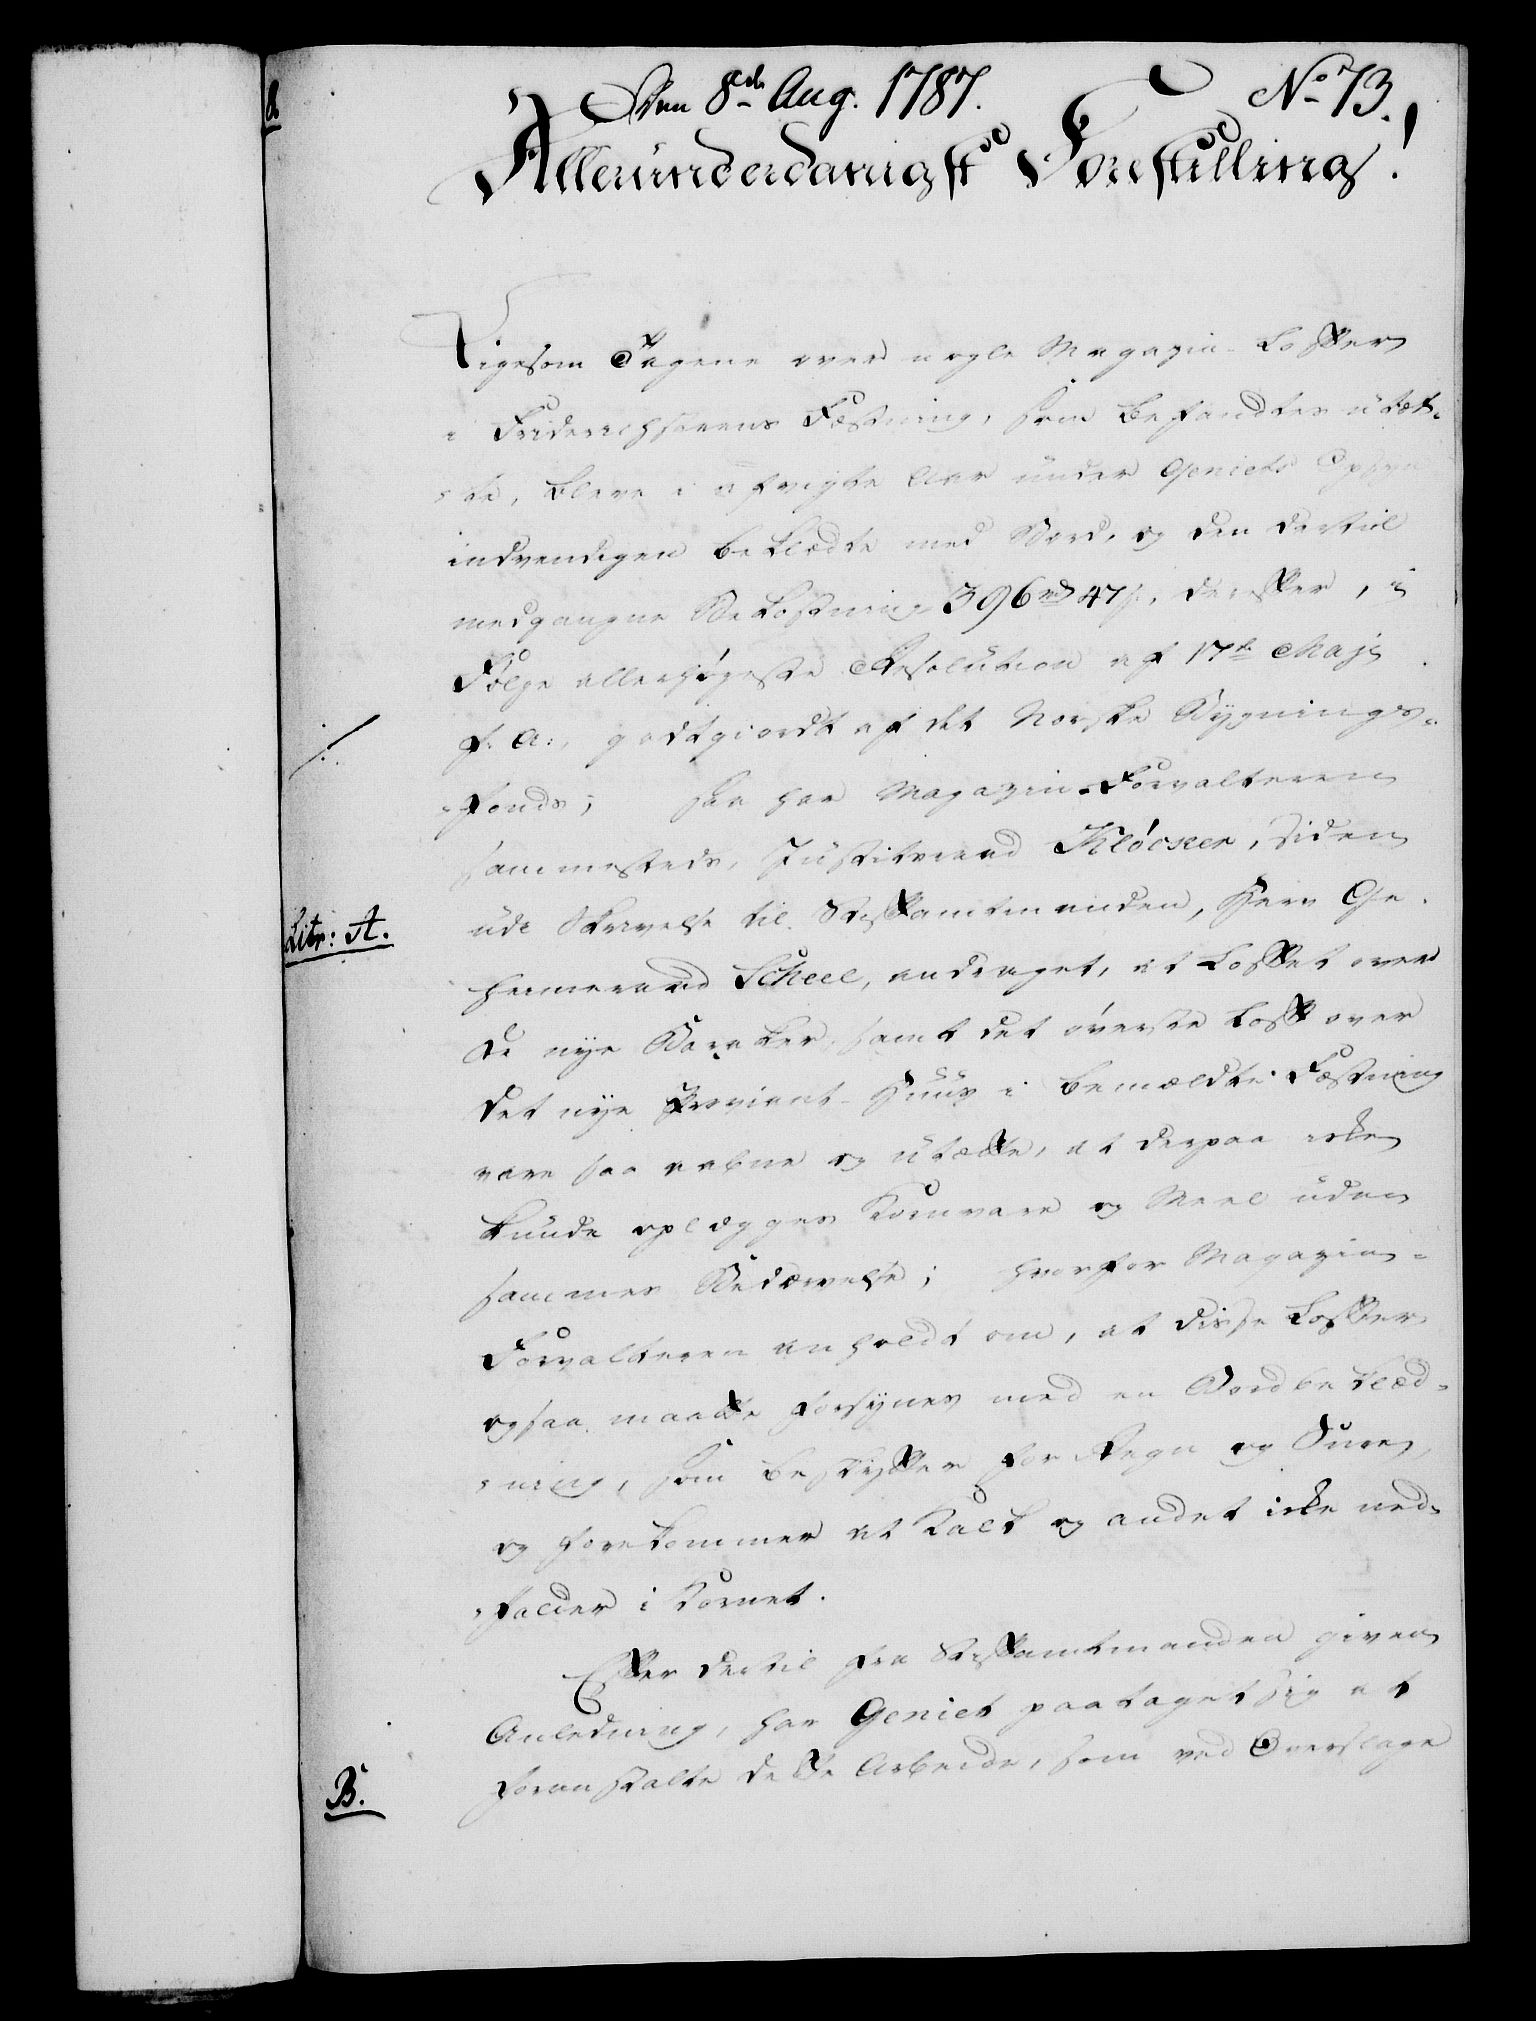 Den 8de Aug. 1787. No 73.
Allerunderdanigst Forestilling!
Ligesom Tagene over nogle Magazin-Lofter
i Friderichsteens Fæstning, som befandtes utæt-
te, bleve i afvigte Aar under Geniets Opsyn
indvendigen beklædte med Bord, og den dertil
medgangne Bekostning 396 rd 47 s, derefter, i
Følge allerhøyeste Resolution af 17de Maji
f. a., godtgiordt af det Norske Bygnings-
Fonds; saa har Magazin-Forvalteren
./.
sammesteds, Justitsraad Klöcker, siden
udi Skrivelse til Stiftamtmanden, Herr Ge-
Litr: A.
heimeraad Scheel, andraget, at Loftet over
de nye Baraker, samt det øverste Loft over
det nye Proviant-Huus i bemældte Fæstning
vare saa aabne og utætte, at derpaa ikke
kunde oplægges Kornvare og Meel uden
sammes Bedærvelse; hvorfor Magazin-
Forvalteren anholdt om, at disse Lofter
ogsaa maatte forsynes med en Bordbeklæd-
ning, som beskytter for Regn og Snee,
og forekommer at Kalk og andet ikke ned-
falder i Kornet.
Efter dertil fra Stiftamtmanden given
Anledning, har Geniet paataget sig at
foranstalte dette Arbeide, som ved Overslage
B.